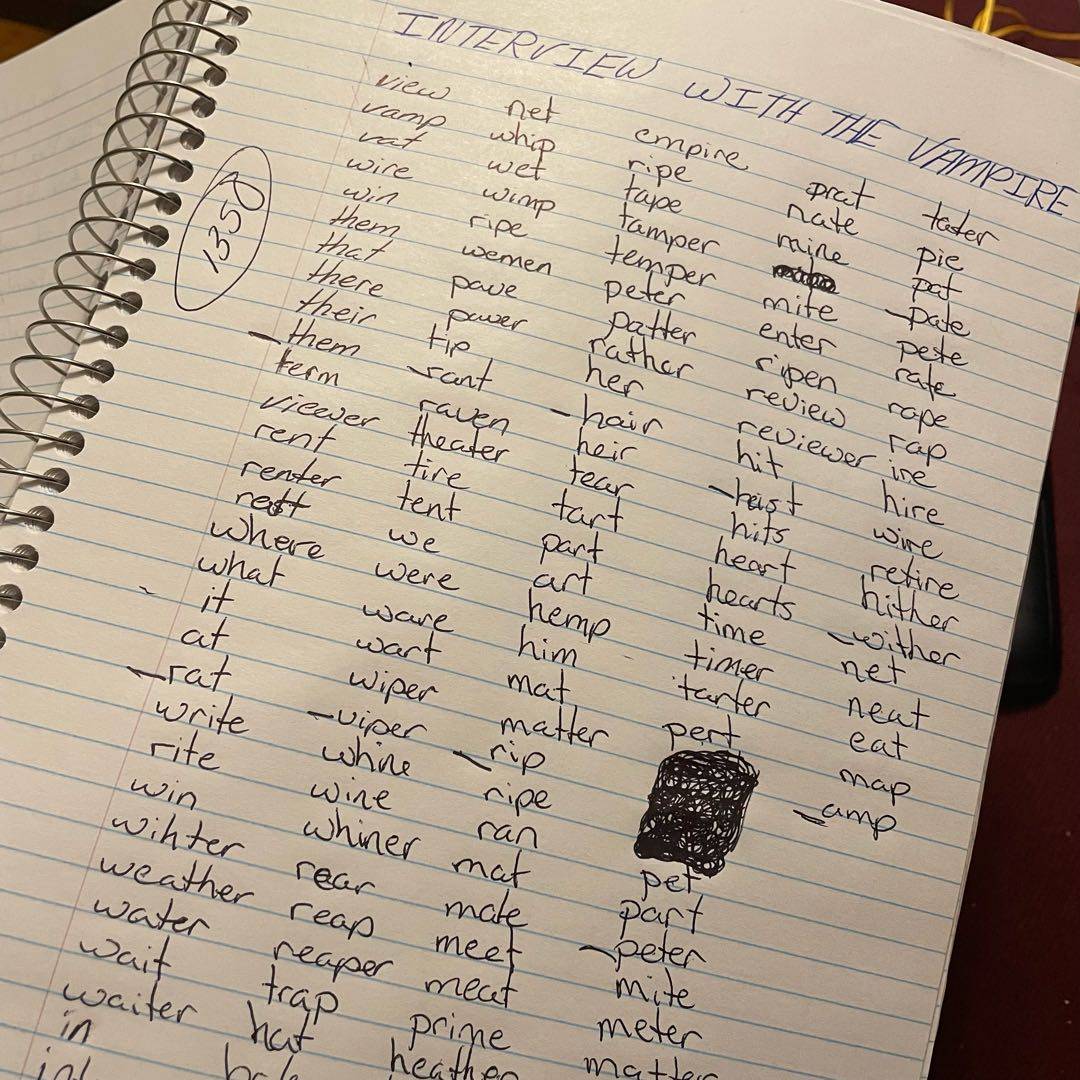 INTERVIEW WITH THE VAMPIRE
1350
view
vamp
rat
wire
win
them
that
there
their
them
term
viewer
rent
renter
where
what
it
at
rat
write
rite
win
wihter
weather
water
wait
waiter
in
net
whip
wet
wimp
ripe
wemen
pave
paver
tip
rant
raven
theater
tire
tent
we
were
ware
wart
wiper
viper
whine
wine
whiner
rear
reap
reaper
trap
hat
empire
ripe
tape
tamper
temper
peter
patter
rather
her
hair
heir
tear
tart
part
art
hemp
him
mat
matter
rip
ripe
ran
mat
mate
meet
meat
prime
heather
prat
nate
mine
mite
enter
ripen
review
reviewer
hit
hits
heart
hearts
time
timer
tarter
pert
pet
part
peter
mite
meter
matter
tater
pie
pat
pate
pete
rate
rape
rap
ire
hire
wire
retire
hither
wither
net
neat
eat
map
amp